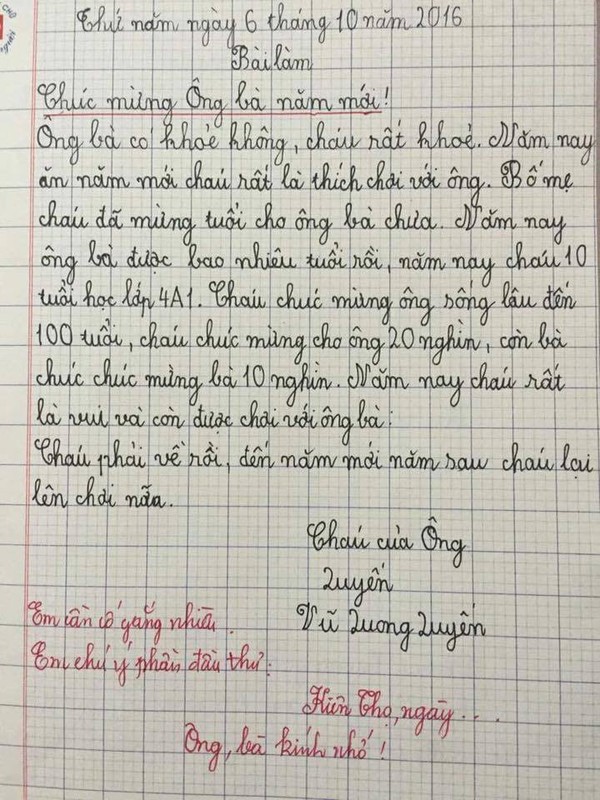 Thứ năm ngày 6 tháng 10 năm 2016
Bài làm
Chúc mừng Ông bà năm mới!
Ông bà có khoẻ không, cháu rất khoẻ. Năm nay
ăn năm mới cháu rất là thích chơi với ông. Bố mẹ
cháu đã mừng tuổi cho ông bà chưa. Năm nay
ông bà được bao nhiêu tuổi rồi, năm nay cháu 10
tuổi học lớp 4A1. Cháu chúc mừng ông sống lâu đến
100 tuổi, cháu chúc mừng cho ông 20 nghìn, còn bà
chúc chúc mừng bà 10 nghìn. Năm nay cháu rất
là vui và còn được chơi với ông bà:
Cháu phải về rồi, đến năm mới năm sau cháu lại
lên chơi nữa.
Cháu của Ông
Quyến
Vũ Quang Quyến
Em cần cố gắng nhiều.
Em chú ý phần đầu thư:
Hiền Thọ, ngày...
Ông, bà kính nhớ!